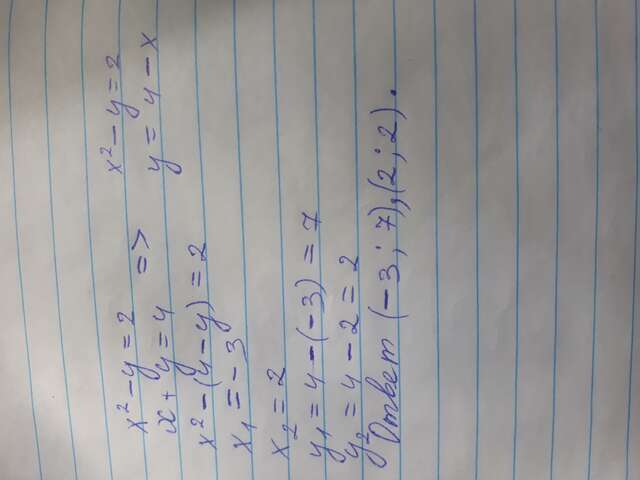 x² - y = 2 => x² - y = 2
x + y = 4 y = 4 - x
x² - (4 - y) = 2
x₁ = -3
x₂ = 2
y₁ = 4 - (-3) = 7
y₂ = 4 - 2 = 2
Ответ (-3; 7), (2; 2).